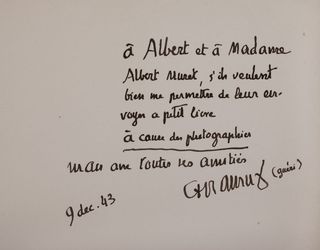 à Albert et à Madame
Albert Muret, s'ils veulent
bien me permettre de leur en-
voyer ce petit livre
à cause des photographies
mais avec toutes nos amitiés
CF Ramuz (guéri)
9 dec. 43